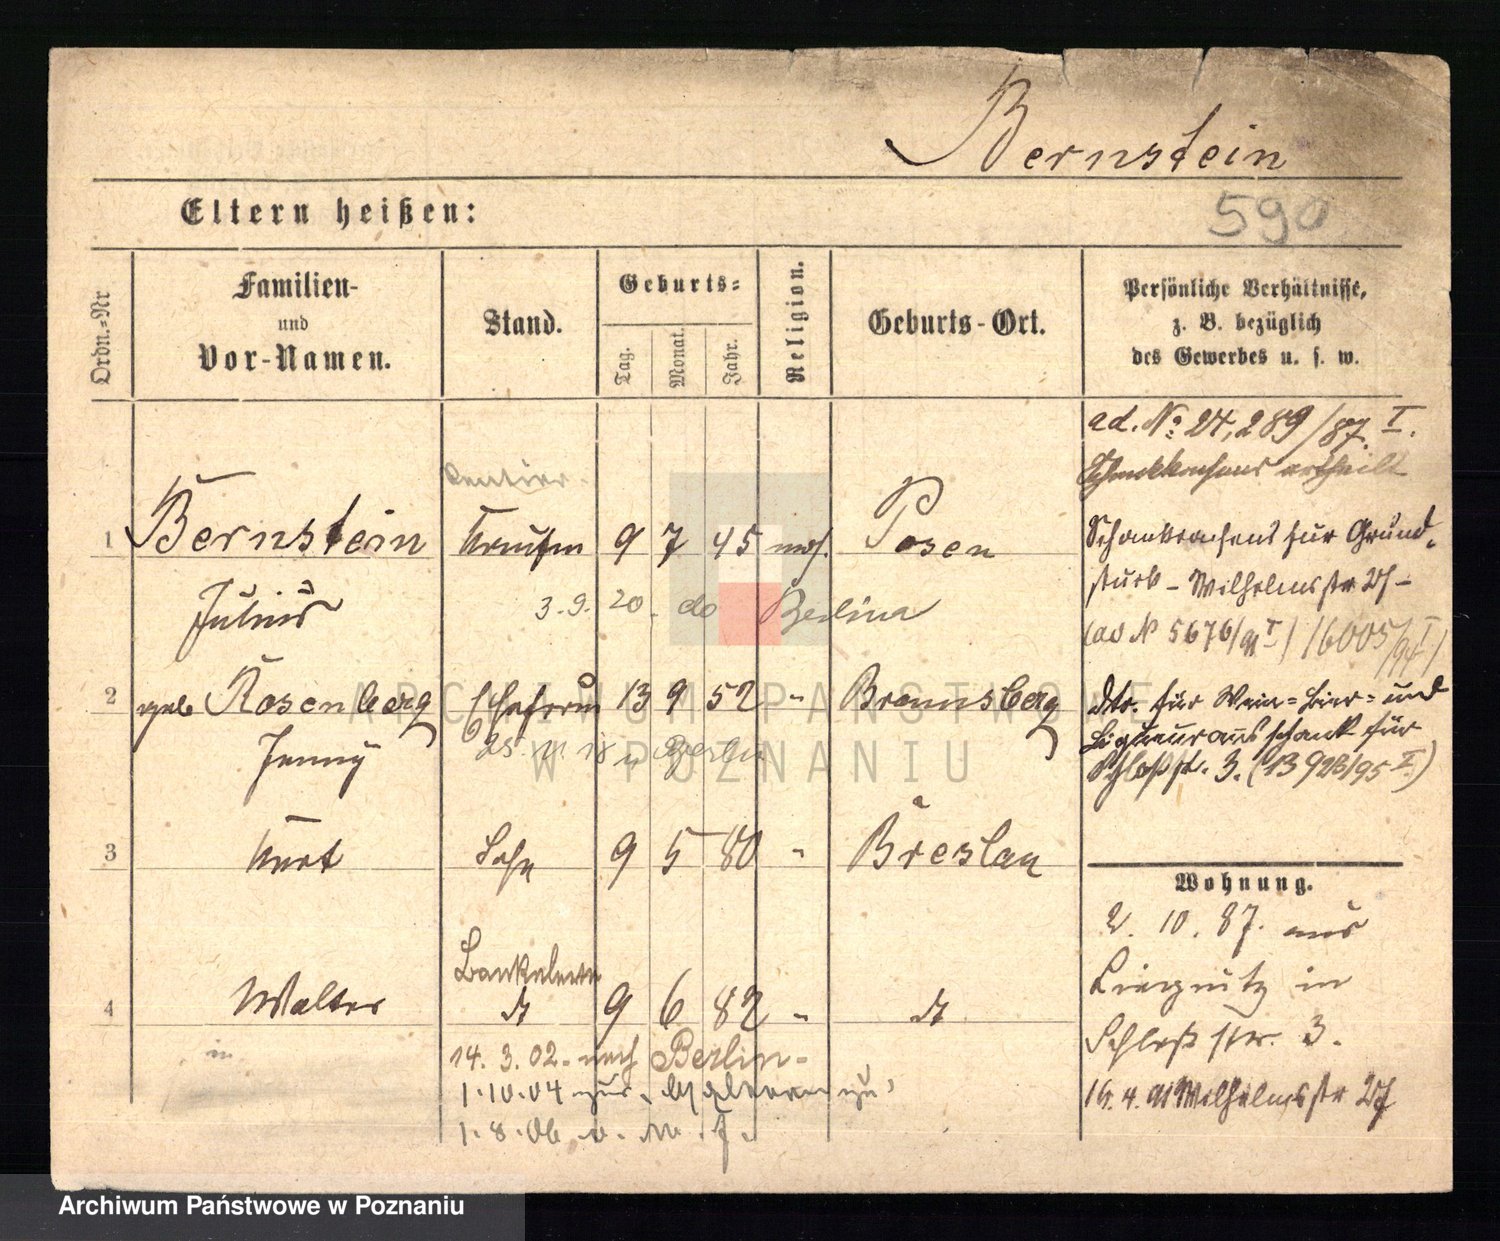 Bernstein
Eltern heißen:
590
Ordn.=Nr
Familien-
und
Vor-Namen.
Stand.
Geburts=
Tag.
Monat.
Jahr.
Religion.
Geburts-Ort.
Persönliche Verhältnisse,
z. B. bezüglich
des Gewerbes u. s. w.
ad. No 24,289/87. I.
Schankkonsens ertheilt
Rentier.
1 Bernstein Kaufm 9 7 45 mos. Posen
Julius
3.9.20. do Berlin
Schankconsens für Grund-
stück - Wilhelmsstr
(ad N 5676/91 I) 16005/94 I)
2 geb Rosenberg Ehefrau 13 9 52 " Bromsberg
Jenny
Berlin
dto. für Wein= Bier= und
Liqueurausschank für
Schloßstr. 3. (13928/95 I.)
ARCHIWUM PAŃSTWOWE
W POZNANIU
3 Kurt Sohn 9 5 80 " Breslau
Wohnung.
2. 10. 87. aus
Liegnitz in
Schloß str. 3.
16. 4. 91 Wilhelmsstr
4 Walter 9 6 82 "
14. 3. 02. nach Berlin-
1.10.04 zur
1.8.06 v.
Archiwum Państwowe w Poznaniu